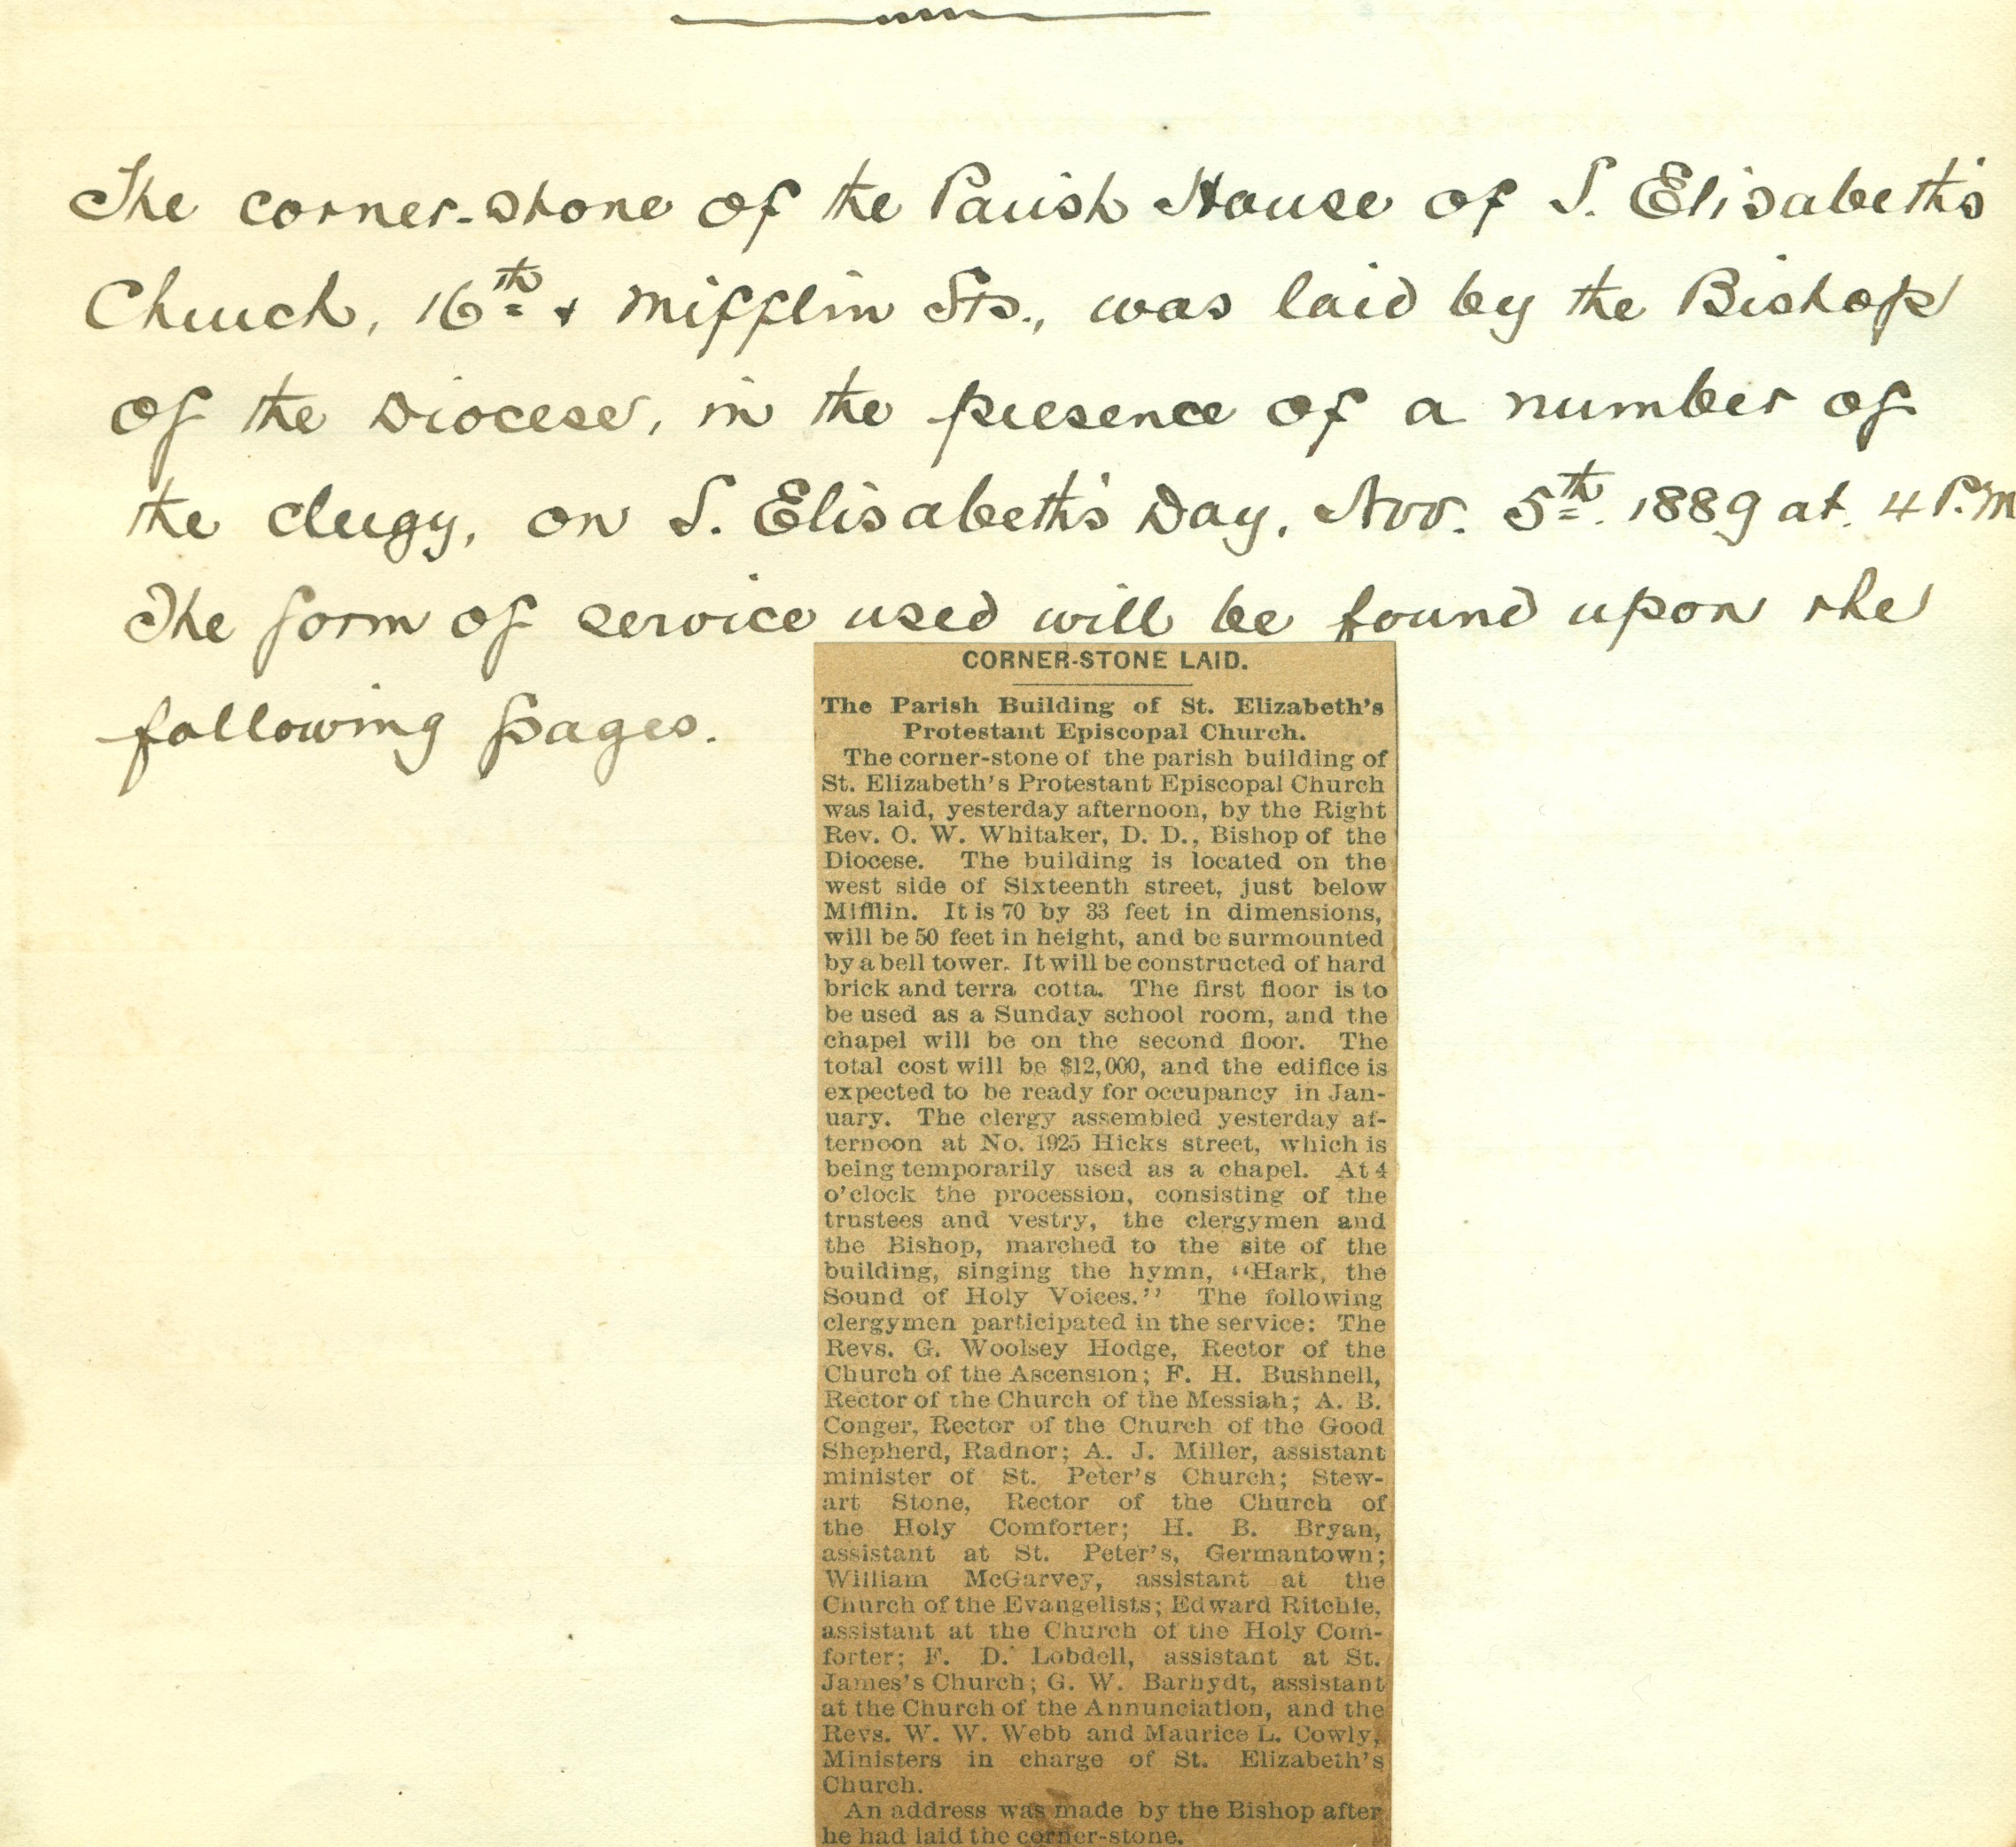 The corner-stone of the Parish House of S. Elisabeth's
Church, 16th & Mifflin Sts., was laid by the Bishop
of the Diocese, in the presence of a number of
the clergy, on S. Elisabeth's Day, Nov. 5th. 1889 at. 4 P.M
The form of service used will be found upon the
following pages.
CORNER-STONE LAID.
The Parish Building of St. Elizabeth's
Protestant Episcopal Church.
The corner-stone of the parish building of
St. Elizabeth's Protestant Episcopal Church
was laid, yesterday afternoon, by the Right
Rev. O. W. Whitaker, D. D., Bishop of the
Diocese. The building is located on the
west side of Sixteenth street, just below
Mifflin. It is 70 by 33 feet in dimensions,
will be 50 feet in height, and be surmounted
by a bell tower. It will be constructed of hard
brick and terra cotta. The first floor is to
be used as a Sunday school room, and the
chapel will be on the second floor. The
total cost will be $12,000, and the edifice is
expected to be ready for occupancy in Jan-
uary. The clergy assembled yesterday af-
ternoon at No. 1925 Hicks street, which is
being temporarily used as a chapel. At 4
o'clock the procession, consisting of the
trustees and vestry, the clergymen and
the Bishop, marched to the site of the
building, singing the hymn, "Hark, the
Sound of Holy Voices." The following
clergymen participated in the service: The
Revs. G. Woolsey Hodge, Rector of the
Church of the Ascension; F. H. Bushnell,
Rector of the Church of the Messiah; A. B.
Conger, Rector of the Church of the Good
Shepherd, Radnor; A. J. Miller, assistant
minister of St. Peter's Church; Stew-
art Stone, Rector of the Church of
the Holy Comforter; H. B. Bryan,
assistant at St. Peter's, Germantown;
William McGarvey, assistant at the
Church of the Evangelists; Edward Ritchie,
assistant at the Church of the Holy Com-
forter; F. D. Lobdell, assistant at St.
James's Church; G. W. Barhydt, assistant
at the Church of the Annunciation, and the
Revs. W. W. Webb and Maurice L. Cowly,
Ministers in charge of St. Elizabeth's
Church.
An address was made by the Bishop after
he had laid the corner-stone.